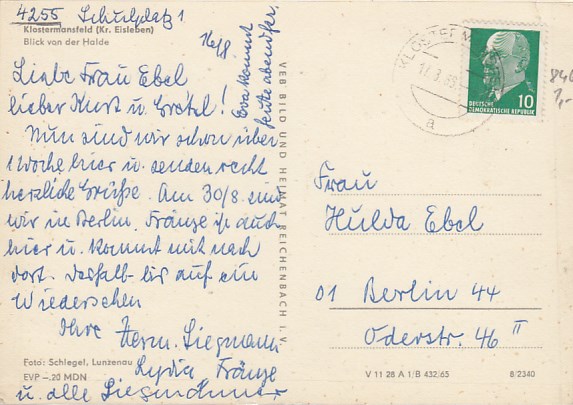 4255 Schulplatz 1
Klostermansfeld (Kr. Eisleben)
Blick von der Halde
Liebe Frau Ebel
lieber Kurt u. Gretel!
Nun sind wir schon über
1 Woche hier u. senden recht
herzliche Grüße. Am 30/8. sind
wir in Berlin. Fränze ist auch
hier u. kommt mit nach
dort. Deshalb bis auf ein
Wiedersehen
Ihre Herm. Siegmann
Lydia Fränze
u. alle
Foto: Schlegel, Lunzenau
EVP –.20 MDN
kommt
heute
VEB BILD UND HEIMAT REICHENBACH I. V.
KLOSTERM
a
10
DEUTSCHE
DEMOKRATISCHE REPUBLIK
Frau
Hulda Ebel
01 Berlin 44
Oderstr. 46 II
V 11 28 A 1/B 432/65
8/2340